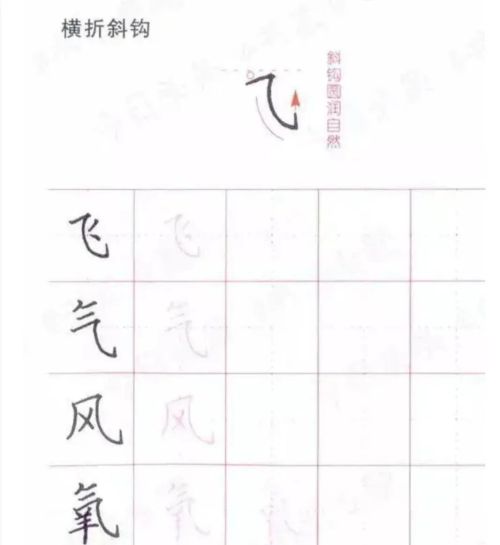 横折斜钩
斜钩圆润自然
飞 飞
气 气
风 风
氧 氧 氧